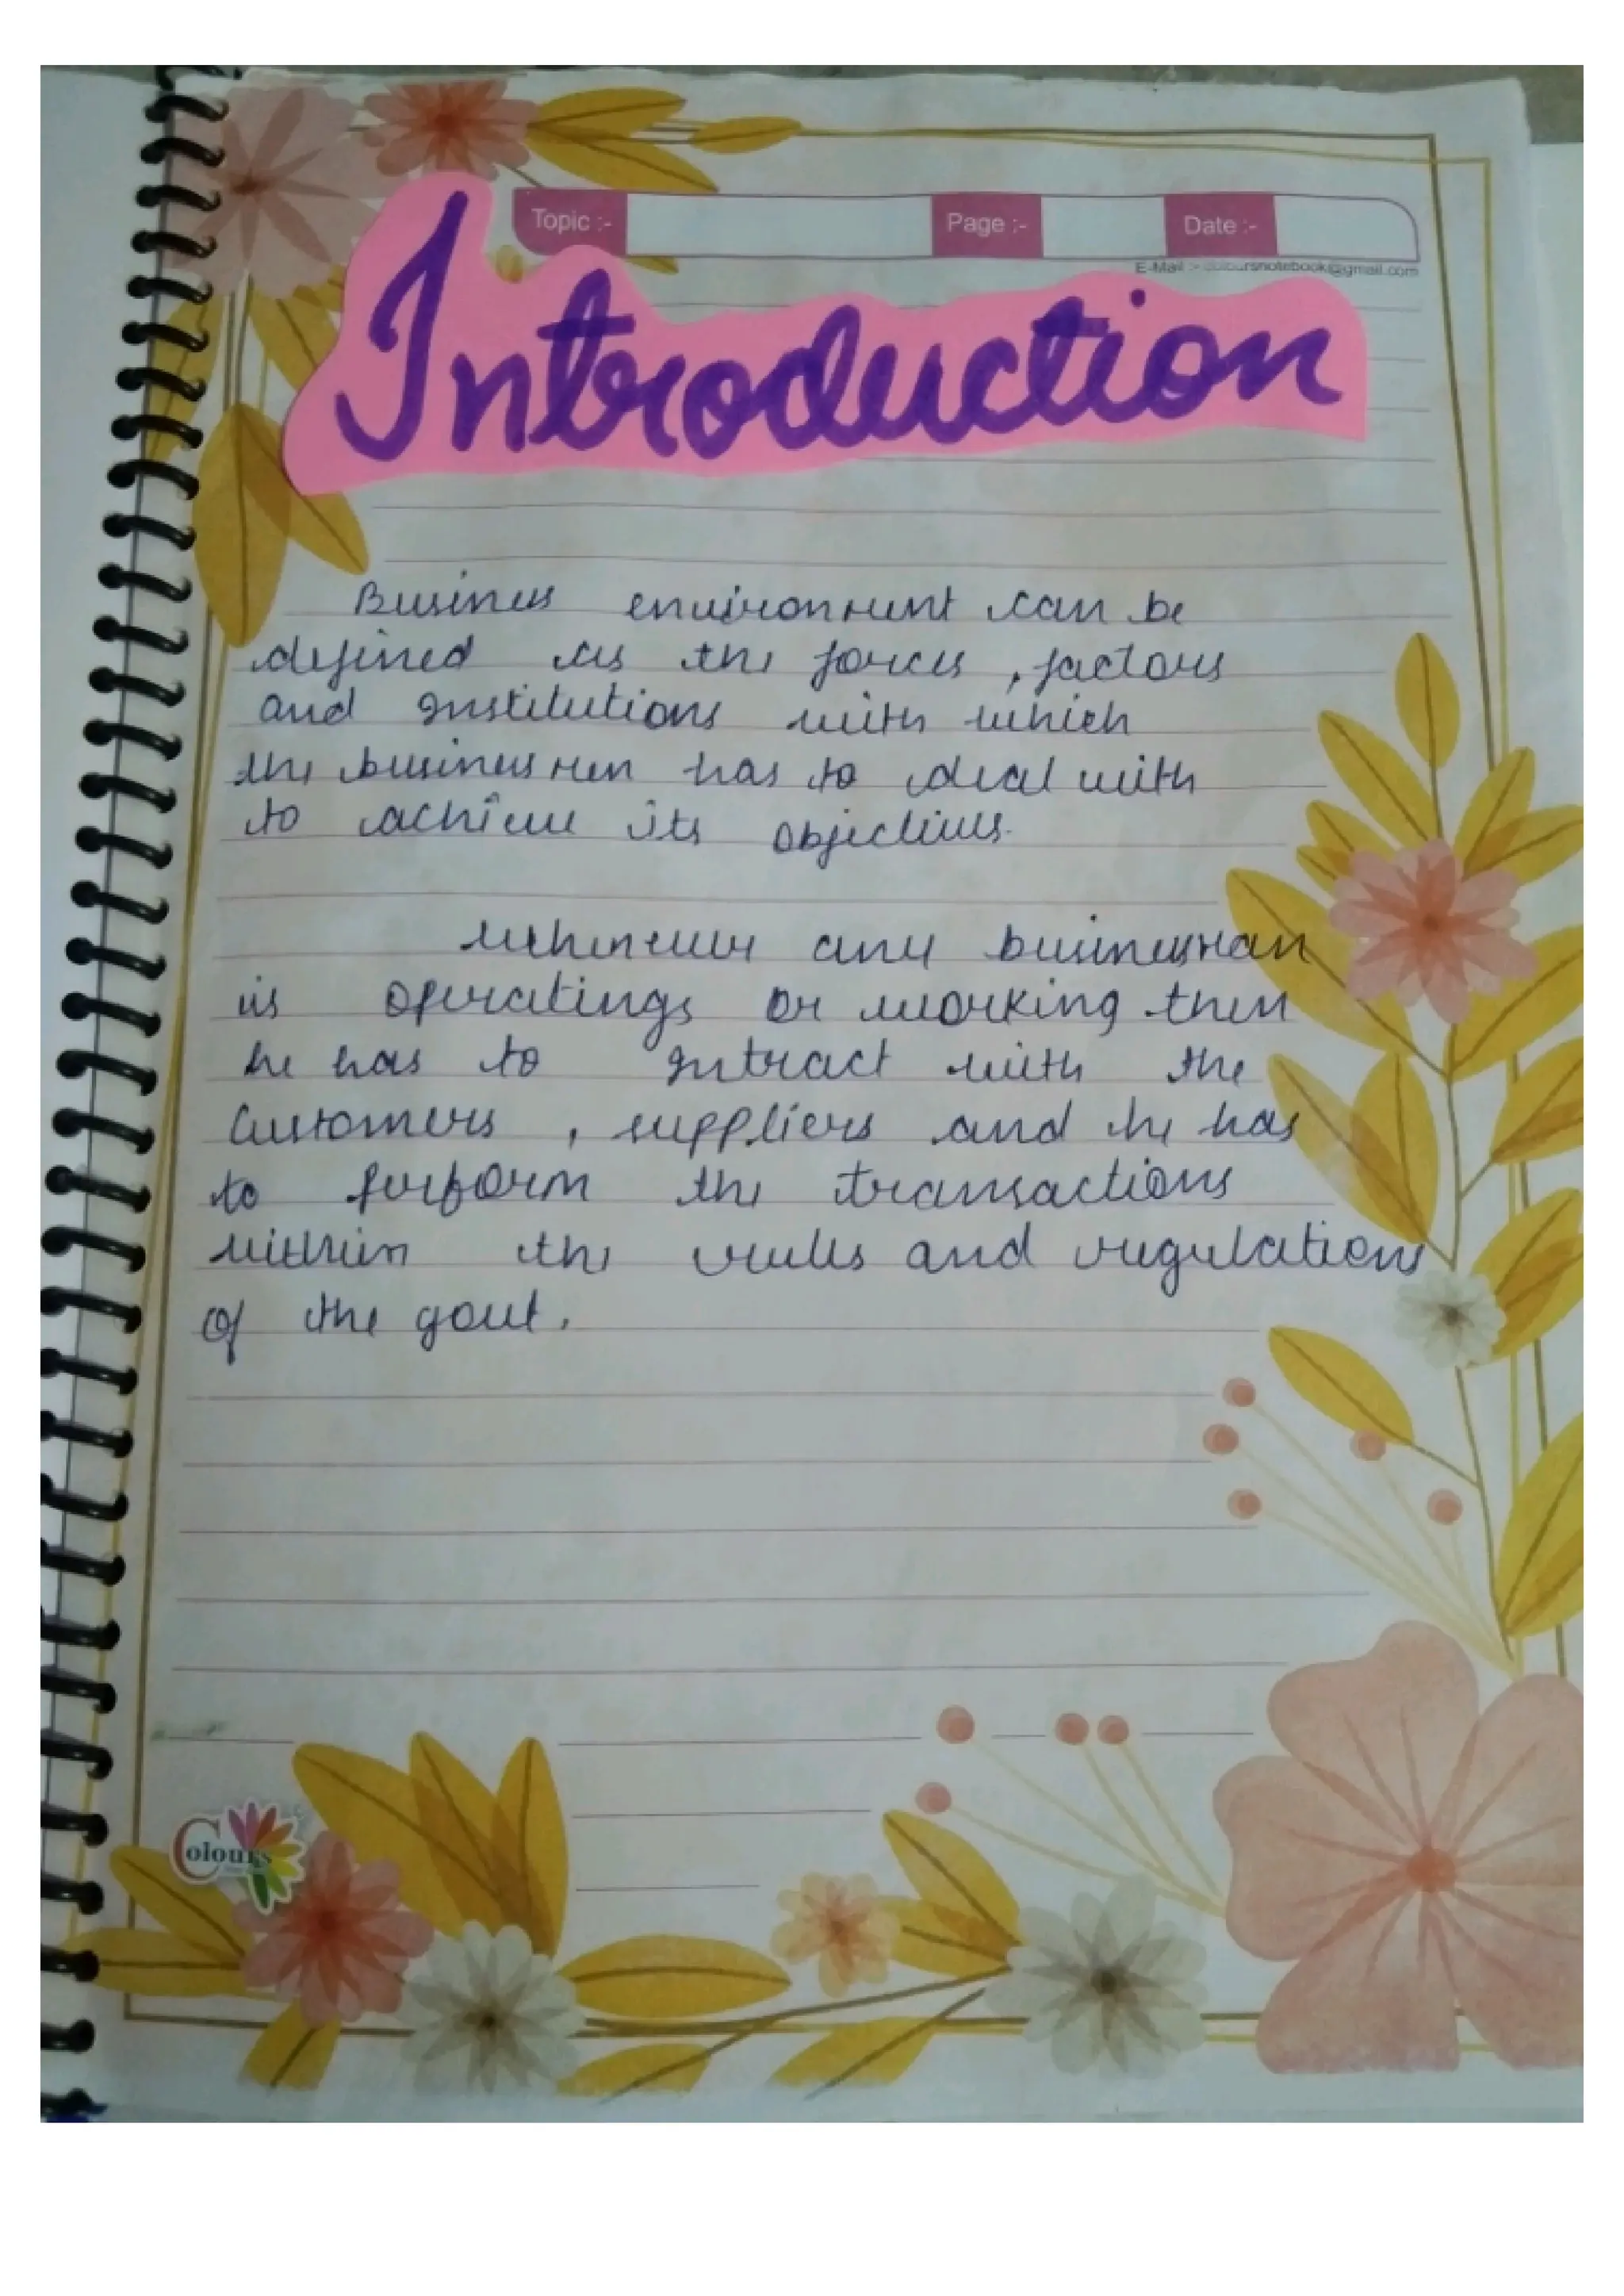 Topic :- Page :- Date :-
E-Mail :- coloursnotebook@gmail.com
Introduction
Business environment can be
defined as the forces , factors
and Institutions with which
the businessmen has to deal with
to achieve its objectives.
Whenever any businessman
is operating or working then
he has to Intract with the
Customers , suppliers and he has
to perform the transactions
within the rules and regulations
of the govt.
Colours